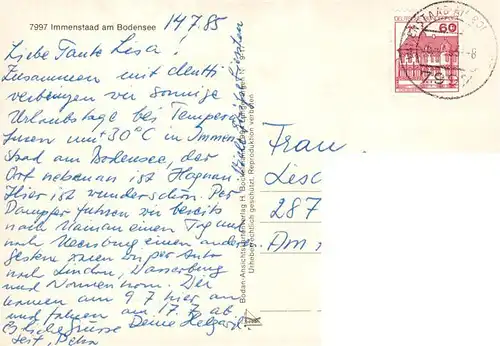 7997 Immenstaad am Bodensee
14.7.85
Liebe Tante Lisa,
Zusammen mit
verbringen wir sonnige
Urlaubstage bei Tempera
turen um +30°C in Immen
staad am Bodensee, der
Ort nebenan ist Hagnau.
Hier ist wunderschön. Per
Dampfer fuhren wir bereits
nach Mainau einen Tag und
nach Meersburg einen andern
gestern waren wir per Auto
nach Lindau, Wasserburg
und Nonnenhorn. Wir
kamen am 9.7. hier an
und fahren am 17.7. ab.
Herzliche Grüsse Deine
60
Bodan-Ansichtskartenverlag H.
Urheberrechtlich geschützt. Reproduktion verboten
Frau
Lisc
287
Am